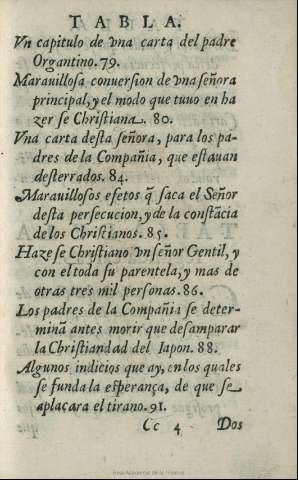 TABLA.
Vn capitulo de vna carta del padre
Organtino. 79.
Marauillosa conuersion de vna señora
principal, y el modo que tuuo en ha
zer se Christiana. 80.
Vna carta desta señora, para los pa-
dres de la Compañia, que estauan
desterrados. 84.
Marauillosos efetos q̃ saca el Señor
desta persecucion, y de la constãcia
de los Christianos. 85.
Haze se Christiano vn señor Gentil, y
con el toda su parentela, y mas de
otras tres mil personas. 86.
Los padres de la Compañia se deter-
minã antes morir que desamparar
la Christiandad del Iapon. 88.
Algunos indicios que ay, en los quales
se funda la esperança, de que se
aplacara el tirano. 91.
Cc 4 Dos
Real Academia de la Historia